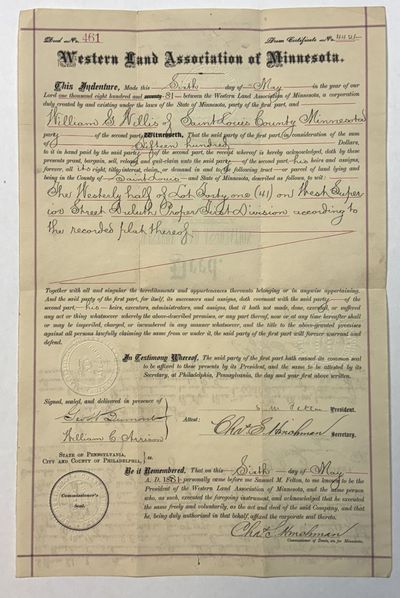 Deed No. 461
From Certificate No.
Western Land Association of Minnesota.
This Indenture, Made this Sixth day of May in the year of our
Lord one thousand eight hundred and 81 between the Western Land Association of Minnesota, a corporation
duly created by and existing under the laws of the State of Minnesota, party of the first part, and
William S. Willis of Saint Louis County Minnesota
party of the second part, Witnesseth, That the said party of the first part, in consideration of the sum
of Fifteen hundred Dollars,
to it in hand paid by the said party of the second part, the receipt whereof is hereby acknowledged, doth by these
presents grant, bargain, sell, release and quit-claim unto the said party of the second part his heirs and assigns,
forever, all its right, title, interest, claim, or demand in and to the following tract or parcel of land lying and
being in the County of Saint Louis and State of Minnesota, described as follows, to wit:
The Westerly half of Lot Forty one (41) on West Super
ior Street Duluth Proper First Division according to
the recorded plat thereof.
Together with all and singular the hereditaments and appurtenances thereunto belonging or in anywise appertaining.
And the said party of the first part, for itself, its successors and assigns, doth covenant with the said party of the
second part his heirs, executors, administrators, and assigns, that it hath not made, done, executed, or suffered
any act or thing whatsoever whereby the above-described premises, or any part thereof, now or at any time hereafter shall
or may be imperiled, charged, or incumbered in any manner whatsoever, and the title to the above-granted premises
against all persons lawfully claiming the same from or under it, the said party of the first part will forever warrant and
defend.
In Testimony Whereof, The said party of the first part hath caused its common seal
to be affixed to these presents by its President, and the same to be attested by its
Secretary, at Philadelphia, Pennsylvania, the day and year first above written.
Signed, sealed, and delivered in presence of
President.
Attest: Chas. S. Hinchman
Secretary.
William C.
State of Pennsylvania,
City and County of Philadelphia, ss.
Be it Remembered, That on this Sixth day of May
A. D. 1881 personally came before me Samuel M. Felton, to me known to be the
President of the Western Land Association of Minnesota, and the same person
who, as such, executed the foregoing instrument, and acknowledged that he executed
the same freely and voluntarily, as the act and deed of the said Company, and that
he, being duly authorized in that behalf, affixed the corporate seal thereto.
Commissioner's
Seal.
Chas. S. Hinchman
Commissioner of Deeds, etc. for Minnesota.